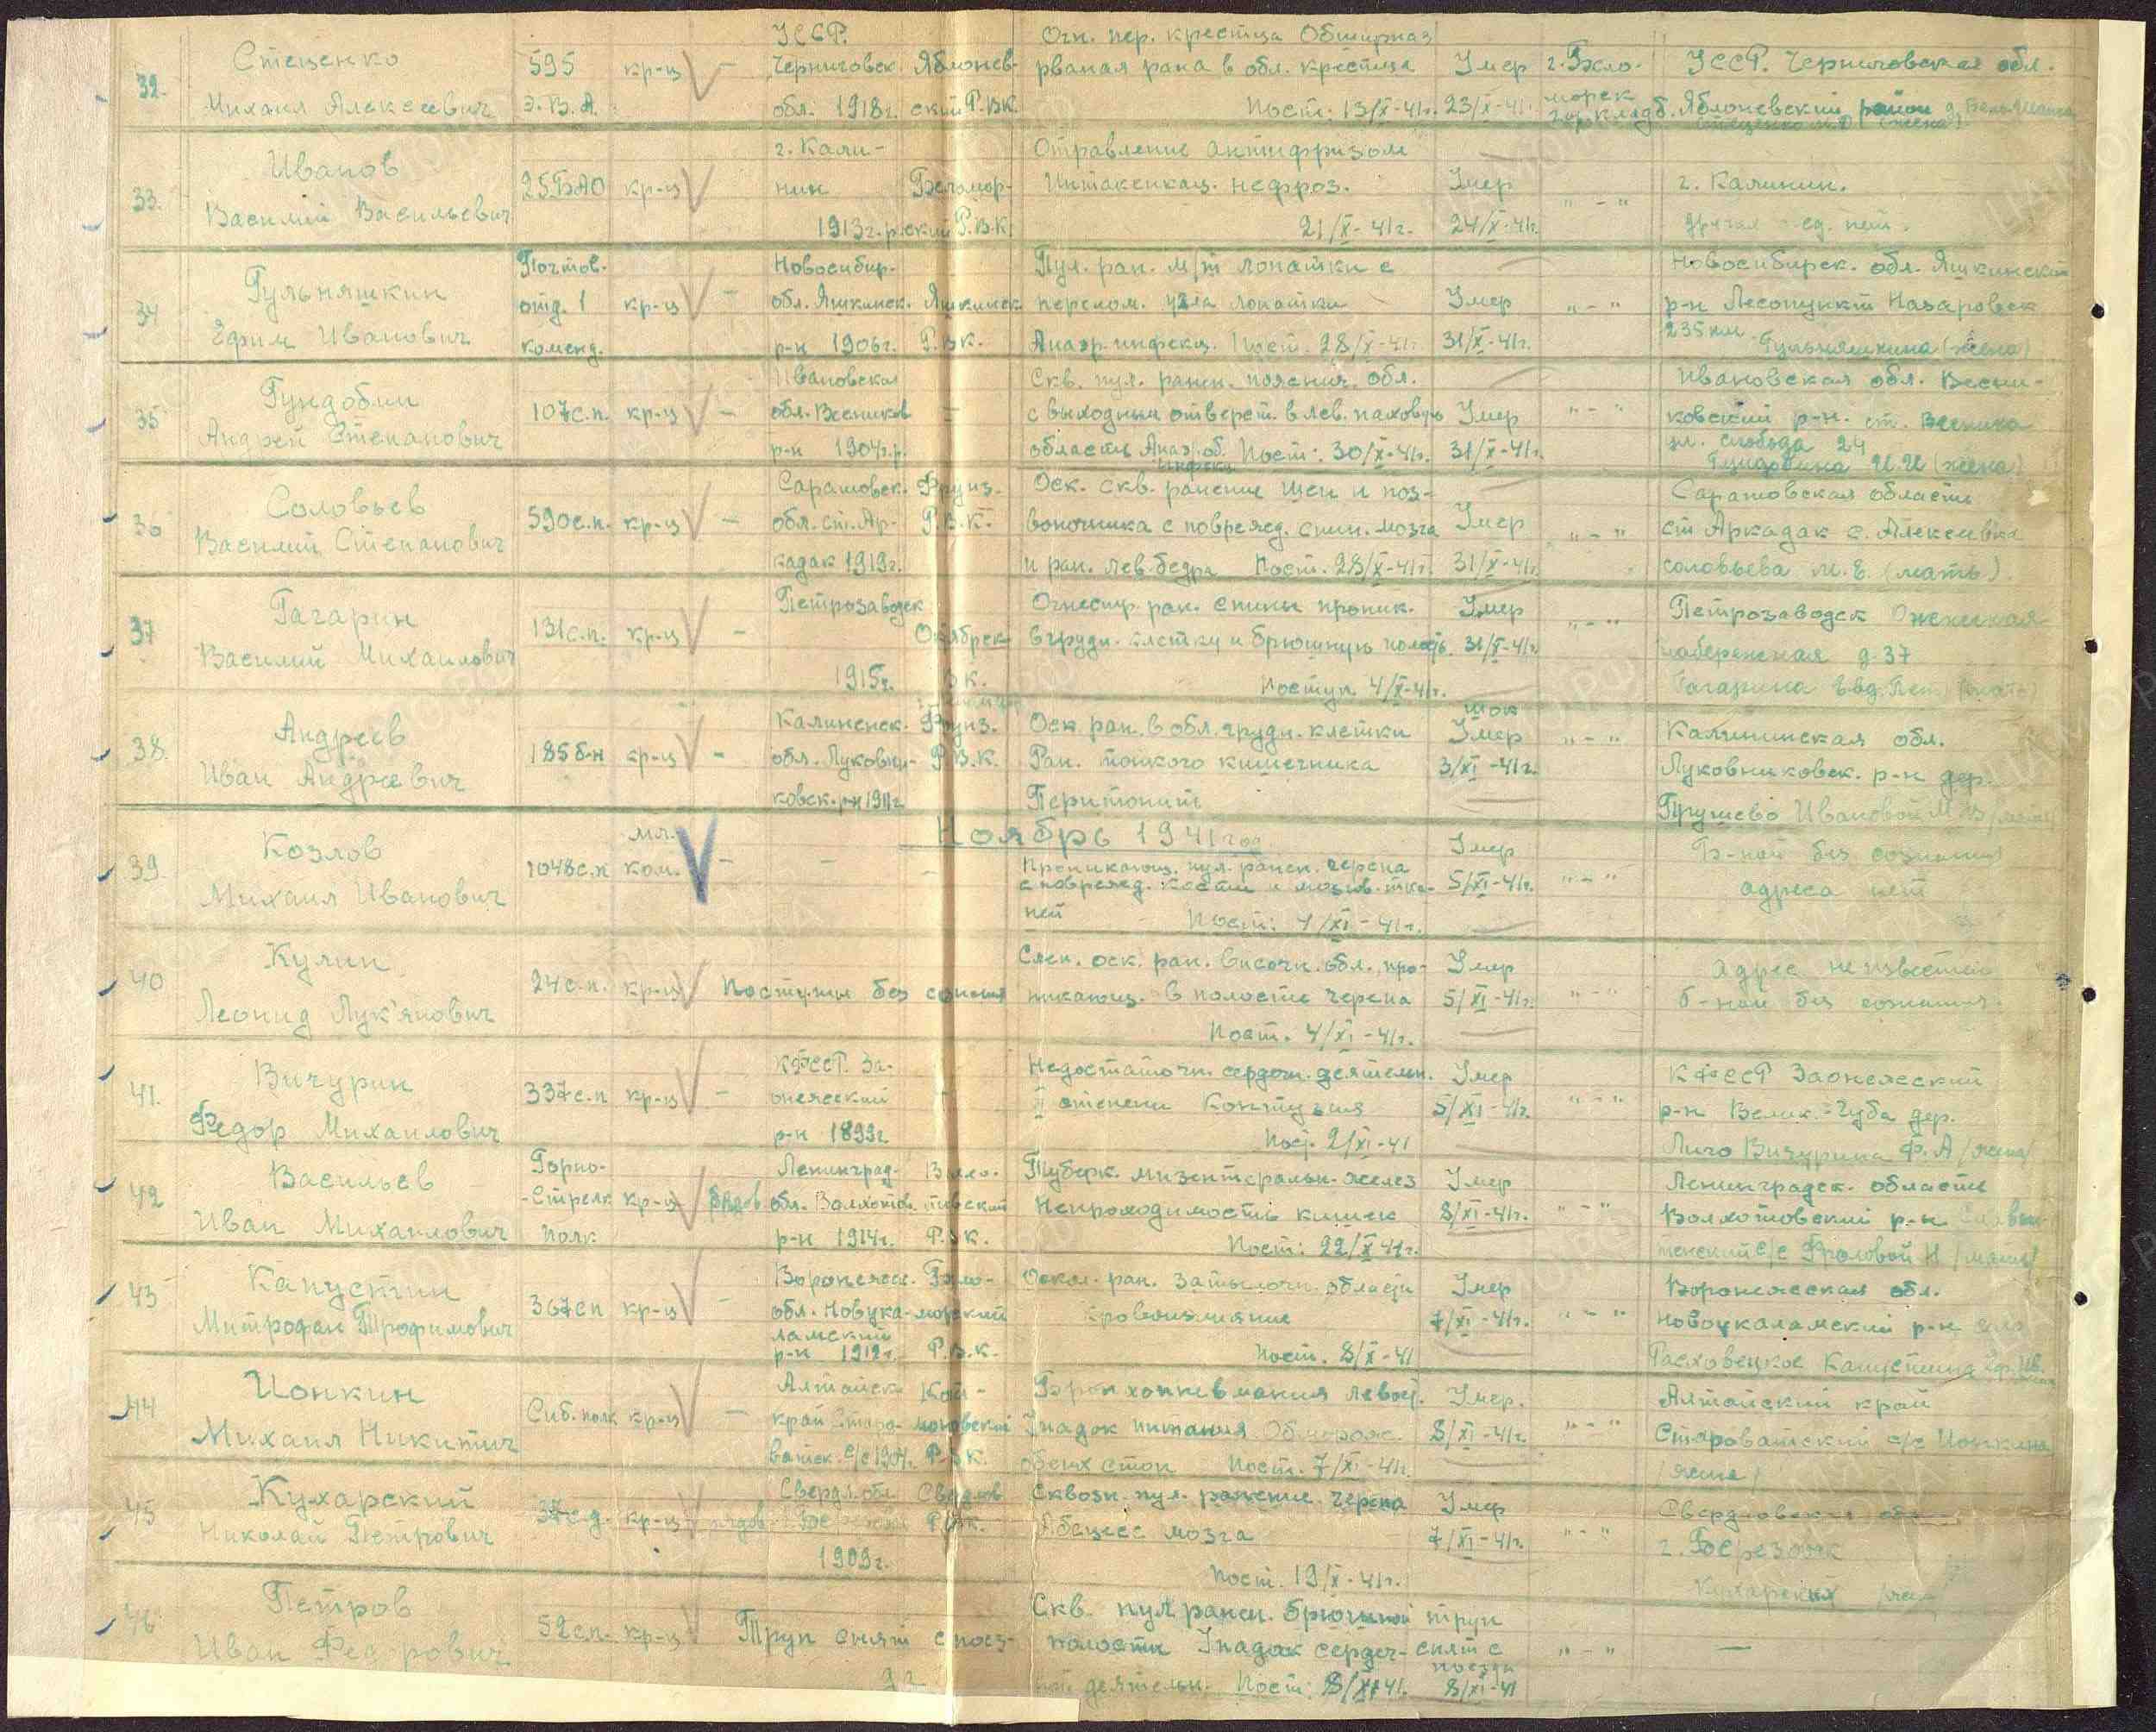 32. Стеценко Михаил Алексеевич 595 э.В.А. кр-ц — УССР. Черниговск. обл. 1918г. Яблонев-ский Р.ВК. Огн. пер. крестца Обширная рваная рана в обл. крестца Пост: 13/X-41г. Умер 23/X-41г. г. Бело-морск гор. кладб. УССР. Черниговская обл. Яблоневский район
33. Иванов Василий Васильевич 25 БАО кр-ц г. Кали-нин 1913г.р. Беломор-ский Р.В.К. Отравление антифризом Интоксикац. нефроз. 21/X-41г. Умер 24/X-41г. " - " г. Калинин.
34 Гульняшкин Ефим Иванович Почтов. отд. 1 коменд. кр-ц — Новосибир. обл. Яшкинск. р-н 1906г. Яшкинск Р.ВК. Пул. ран. м/т лопатки с перелом. угла лопатки Анаэр. инфекц. Пост. 28/X-41г. Умер 31/X-41г. " - " Новосибирск. обл. Яшкинский р-н Лесопункт Назаровск 235 км Гульняшкина (жена)
35 Гундобин Андрей Степанович 107с.п. кр-ц — Ивановская обл. Весников р-н 1904г.р. — Скв. пул. ранен. поясн. обл. с выходным отверст. в лев. паховую область Анаэр.об. инфекц. Пост: 30/X-41г. Умер 31/X-41г. " - " Ивановская обл. Весни-ковский р-н. ст. Весника ул. Слобода 24 Гундобина И.И (жена)
36 Соловьев Василий Степанович 590с.п. кр-ц — Саратовск. обл. ст. Ар-кадак 1919г. Фрунз. Р.В.К. Оск. скв. ранение шеи и поз-воночника с поврежд. спин. мозга и ран. лев. бедра Пост. 28/X-41г. Умер 31/X-41г. " - " Саратовская область ст Аркадак с. Алексеевка Соловьева М.Е. (мать).
37 Гагарин Василий Михайлович 131с.п. кр-ц — Петрозаводск 1915г. Октябрск ВК. Огнестр. ран. спины проник. в грудн. клетку и брюшную полость. Поступ. 4/X-41г. Умер 31/X-41г " - " Петрозаводск Онежская набережная д. 37 Гагарина Евд. Пет. (мать)
38. Андреев Иван Андреевич 185 б-н кр-ц — Калиненск. обл. Луковни-ковск. р-н 1911г Фрунз. Р.В.К. Оск. ран. в обл. грудн. клетки Ран. тонкого кишечника Перитонит шок Умер 3/XI-41г. " - " Калининская обл. Луковниковск. р-н дер. Трушево Ивановой
Ноябрь 1941 год
39. Козлов Михаил Иванович 1048с.п мл. ком. — — — Проникающ. пул. ранен. черепа с поврежд. кости и мозгов. тка-ней Пост: 4/XI-41г. Умер 5/XI-41г. " - " Б-ной без сознания адреса нет
40 Кулик Леонид Лукьянович 24с.п. кр-ц Поступил без сознания Слеп. оск. ран. височн. обл. про-никающ. в полость черепа Пост. 4/XI-41г. Умер 5/XI-41г. " - " адрес неизвестен б-ной без сознания.
41. Вичурин Федор Михайлович 337с.п кр-ц — КФССР. За-онежский р-н 1899г. Недостаточн. сердечн. деятельн. II степени Контузия Пост. 2/XI-41 Умер 5/XI-41г. " - " КФССР Заонежский р-н Велик.-Губа дер. Вичурина Ф.А /жена/
42 Васильев Иван Михайлович Горно-Стрелк полк кр-ц рядов. Ленинград. обл. Волхотов. р-н 1914г. Р.ВК. Туберк. мизентеральн. желез Непроходимость кишек Пост: 22/X 41г. Умер 8/XI-41г. " - " Ленинградск. область Волхотовский р-н с/с Фроловой Н /мать/
43 Капустин Митрофан Трофимович 367сп кр-ц — Воронежск. обл. Новука-ламский р-н 1912г. Бело-морский Р.В.К. Оскол. ран. затылочн. области кровоизлияние Пост. 8/X-41 Умер 7/XI-41г. " - " Воронежская обл. Новоукаламский р-н село Расховецкое Капустина
44 Ионкин Михаил Никитич Сиб. полк кр-ц — Алтайск край Старо-ватск. с/с 190г. Р.ВК. Бронхопневмония левост. Упадок питания Обморож. обеих стоп Пост. 7/XI-41г. Умер. 8/XI-41г. " - " Алтайский край Староватский с/с Ионкина /жена/
45 Кухарский Николай Петрович 37с.д. кр-ц рядов. Свердл. обл. 1909г. Свердлов Р.ВК. Сквозн. пул. ранение черепа Абсцесс мозга Пост. 19/X-41г. Умер 7/XI-41г. " - " Свердловская обл г. Березовск
46 Петров Иван Федорович 52сп. кр-ц Труп снят с поез-да Скв. пул ранен. брюшной полости Упадок сердеч-ной деятельн. Пост: 8/XI 41г. труп снят с поезда 8/XI-41 " - " —